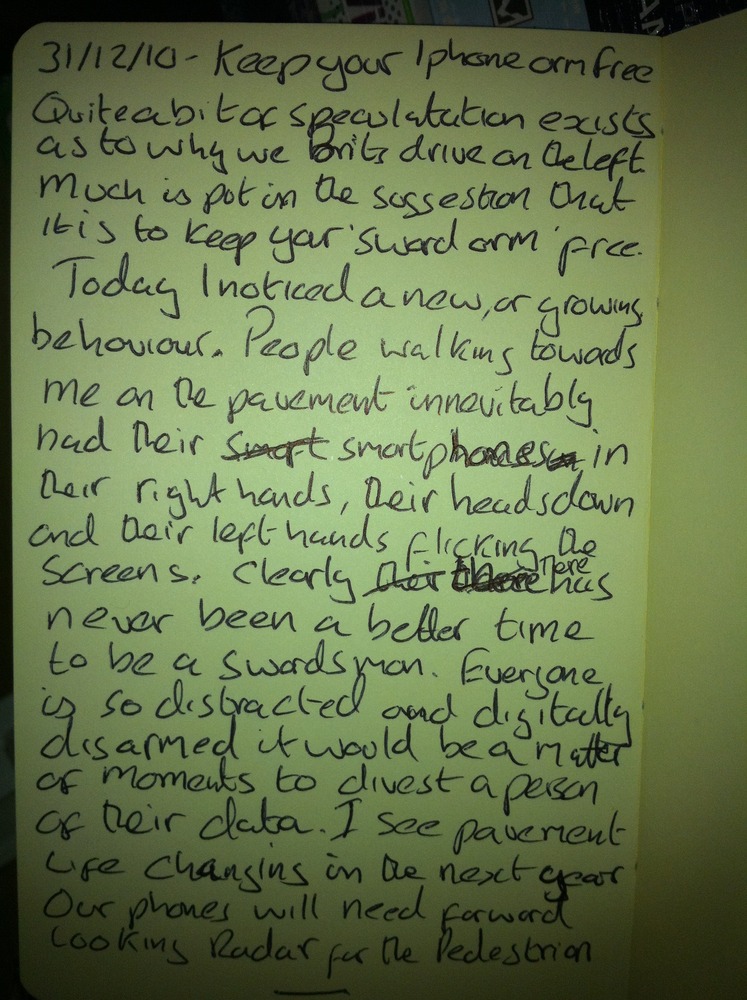 31/12/10 - Keep your Iphone arm free
Quite a bit of speculatation exists
as to why we Brits drive on the left.
Much is put in the suggestion that
it is to keep your 'sword arm' free.
Today I noticed a new, or growing
behaviour. People walking towards
me on the pavement innevitably
had their smart smartphones in
their right hands, their heads down
and their left hands flicking the
screens. Clearly their there There has
never been a better time
to be a swordsman. Everyone
is so distracted and digitally
disarmed it would be a matter
of moments to divest a person
of their data. I see pavement
life changing in the next year
Our phones will need forward
looking Radar for the Pedestrian